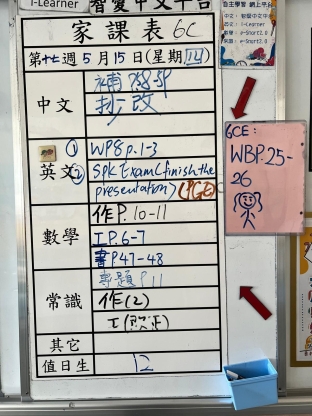 i-Learner
智愛中文平台
家課表 6C
第十七週 5月15日(星期四)
中文
補 P.58-59
抄改
英文
① WP8 p.1-3
② Spk Exam (finish the
presentation) (PGE)
數學
作 P. 10-11
工 P. 6-7
書 P.47-48
常識
專題 P.11
作(2)
其它
值日生
12
自主學習 網上平台
6CE:
WBP.25-
26